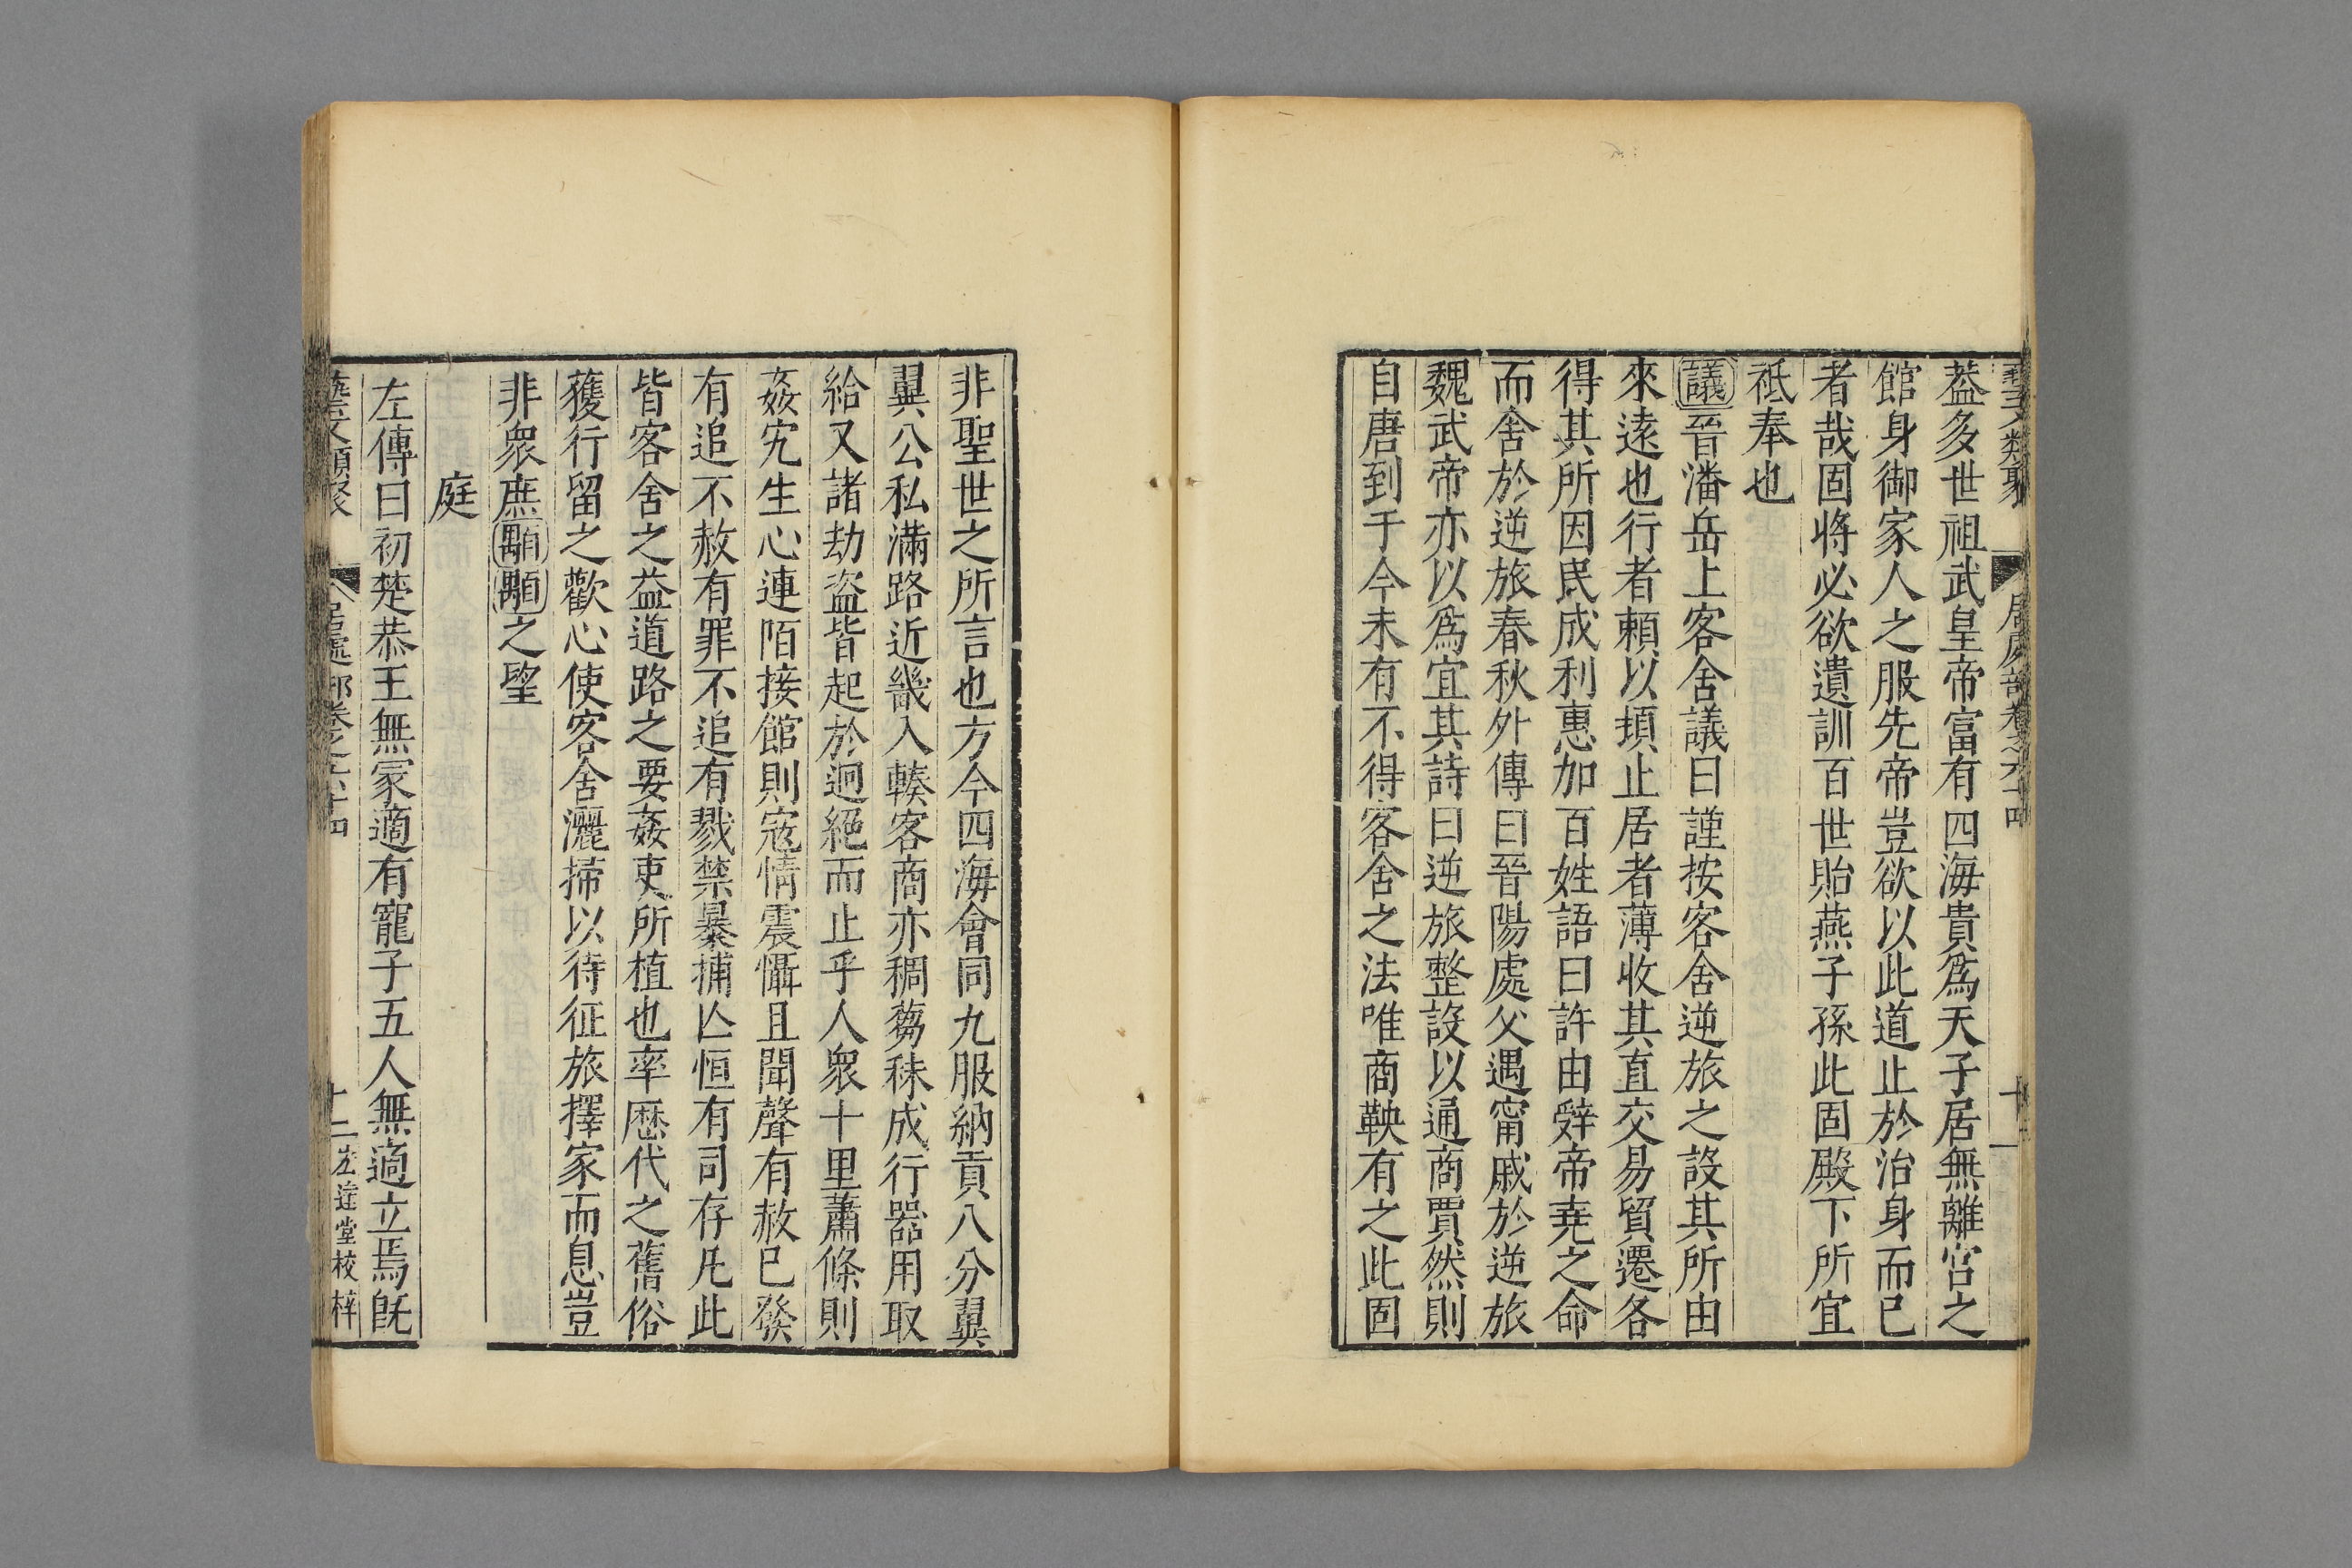 藝文類聚 居處部卷之六十四 十一
葢多世祖武皇帝富有四海貴爲天子居無離宮之
館身御家人之服先帝豈欲以此道止於治身而已
者哉固將必欲遺訓百世貽燕子孫此固殿下所宜
祗奉也
議晉潘岳上客舍議曰謹按客舍逆旅之設其所由
來遠也行者頼以頓止居者薄收其直交易貿遷各
得其所因民成利惠加百姓語曰許由辝帝堯之命
而舍於逆旅春秋外傳曰晉陽處父遇甯戚於逆旅
魏武帝亦以爲宜其詩曰逆旅整設以通商賈然則
自唐到于今未有不得客舍之法唯商鞅有之此固
非聖世之所言也方今四海會同九服納貢八分翼
翼公私滿路近畿入輳客商亦稠蒭秣成行器用取
給又諸劫盜皆起於迥絕而止乎人衆十里蕭條則
姦宄生心連陌接館則寇情震懾且聞聲有赦已發
有追不赦有罪不追有戮禁暴捕亾恒有司存凡此
皆客舍之益道路之要姦吏所植也率歷代之舊俗
獲行留之歡心使客舍灑掃以待征旅擇家而息豈
非衆庶顒顒之望
庭
左傳曰初楚恭王無冢適有寵子五人無適立焉旣
藝文類聚 居處部卷之六十四 十二